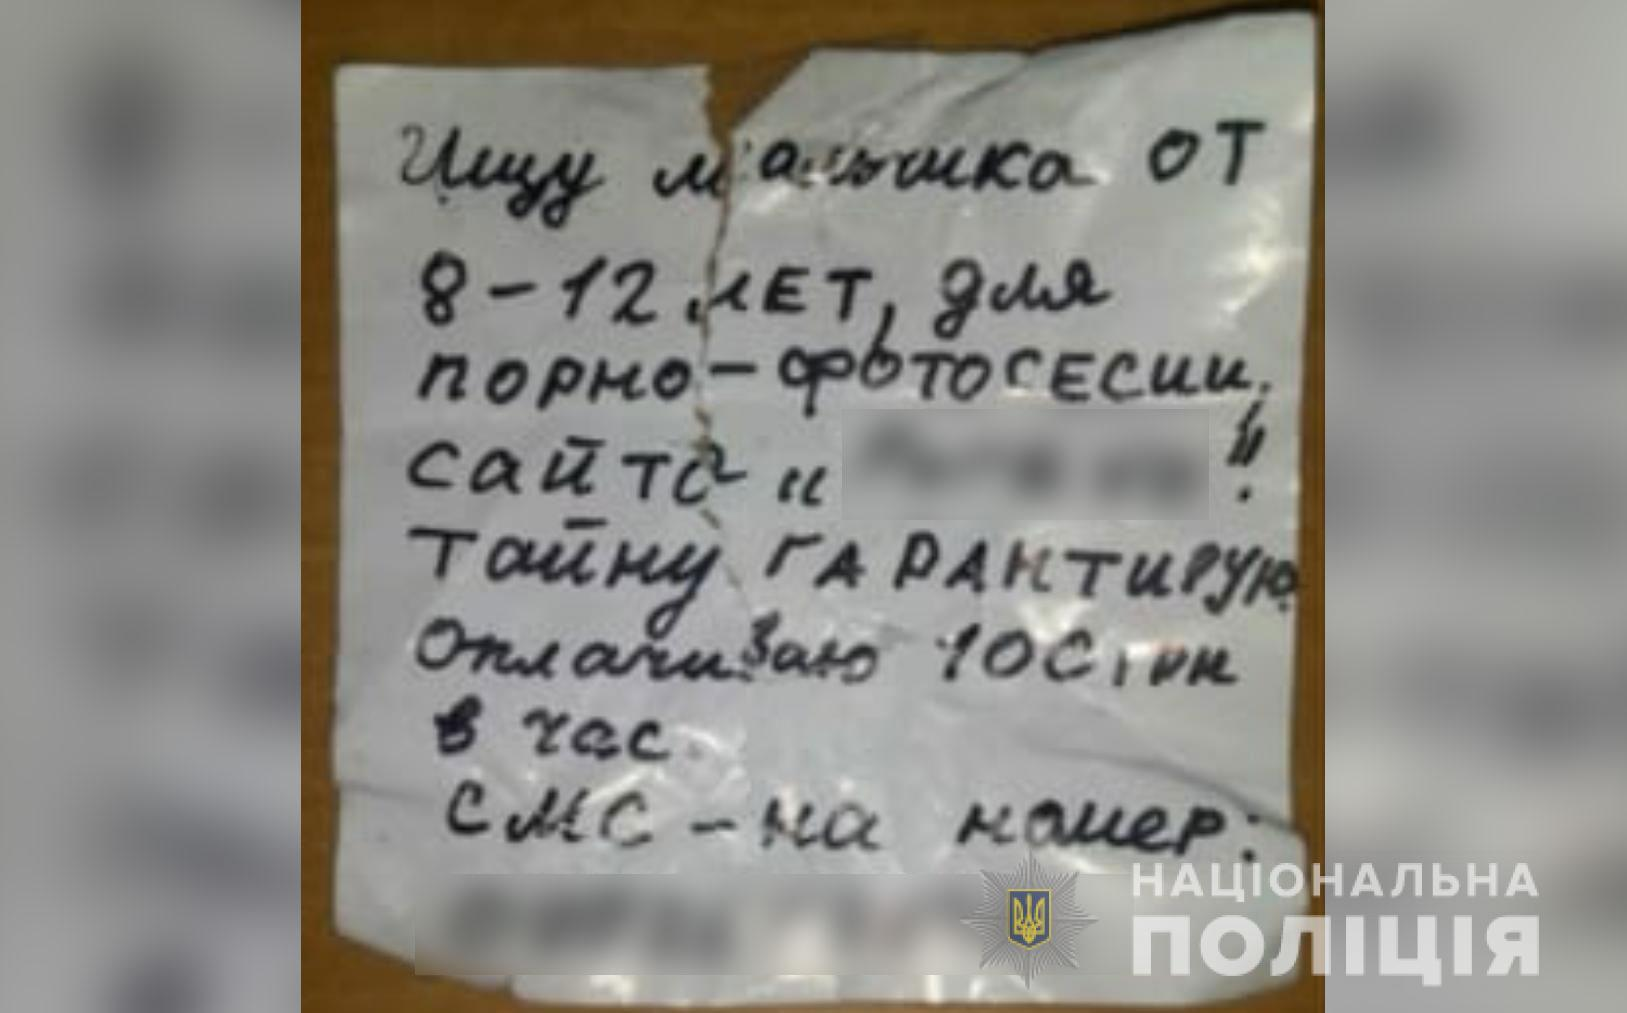 Ищу мальчика ОТ
8-12 ЛЕТ, для
порно-фотосесии,
сайта "
"!
Тайну ГАРАНТИРУЮ
Оплачиваю 100 грн
в час.
СМС - на номер:
НАЦІОНАЛЬНА
ПОЛІЦІЯ